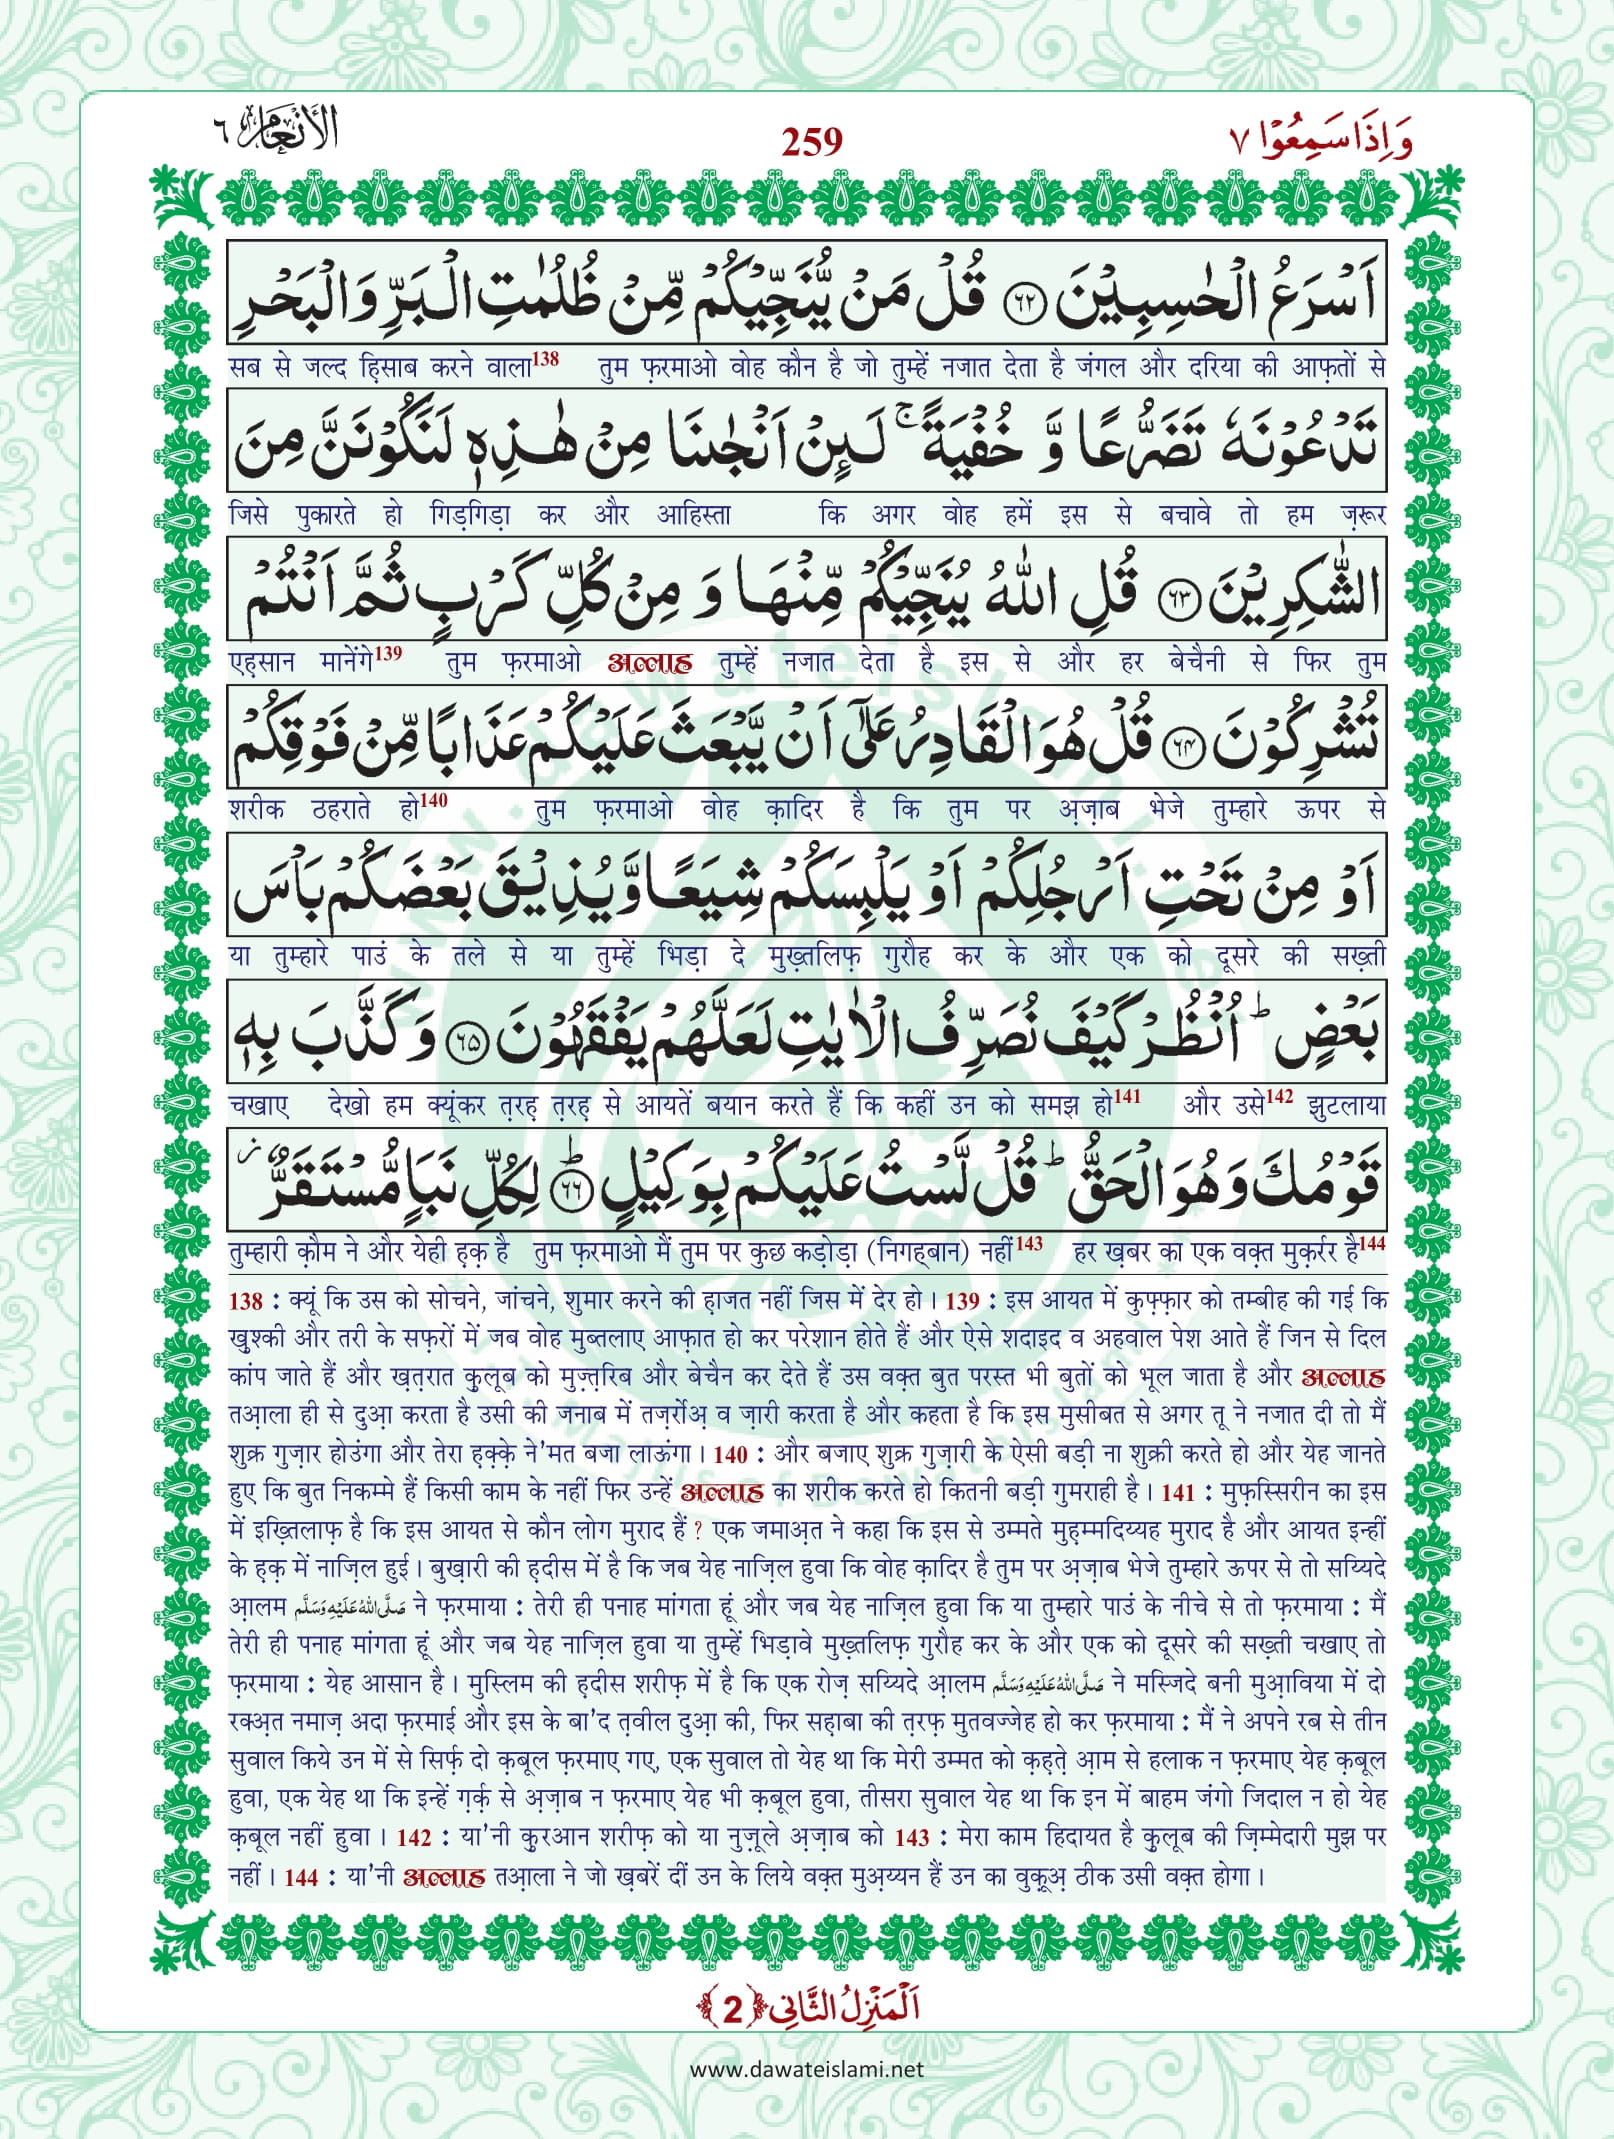 وَاِذَا سَمِعُوْا ٧
259
الأنعام ٦
اَسْرَعُ الْحٰسِبِيْنَ ۝٦٢ قُلْ مَنْ يُّنَجِّيْكُمْ مِّنْ ظُلُمٰتِ الْبَرِّ وَالْبَحْرِ
सब से जल्द ह़िसाब करने वाला138 तुम फ़रमाओ वोह कौन है जो तुम्हें नजात देता है जंगल और दरिया की आफ़तों से
تَدْعُوْنَهٗ تَضَرُّعًا وَّ خُفْيَةً ۚ لَىِٕنْ اَنْجٰىنَا مِنْ هٰذِهٖ لَنَكُوْنَنَّ مِنَ
जिसे पुकारते हो गिड़गिड़ा कर और आहिस्ता कि अगर वोह हमें इस से बचावे तो हम ज़रूर
الشّٰكِرِيْنَ ۝٦٣ قُلِ اللّٰهُ يُنَجِّيْكُمْ مِّنْهَا وَ مِنْ كُلِّ كَرْبٍ ثُمَّ اَنْتُمْ
एह़सान मानेंगे139 तुम फ़रमाओ अल्लाह तुम्हें नजात देता है इस से और हर बेचैनी से फिर तुम
تُشْرِكُوْنَ ۝٦٤ قُلْ هُوَ الْقَادِرُ عَلٰۤى اَنْ يَّبْعَثَ عَلَيْكُمْ عَذَابًا مِّنْ فَوْقِكُمْ
शरीक ठहराते हो140 तुम फ़रमाओ वोह क़ादिर है कि तुम पर अ़ज़ाब भेजे तुम्हारे ऊपर से
اَوْ مِنْ تَحْتِ اَرْجُلِكُمْ اَوْ يَلْبِسَكُمْ شِيَعًا وَّيُذِيْقَ بَعْضَكُمْ بَاْسَ
या तुम्हारे पाउं के तले से या तुम्हें भिड़ा दे मुख़्तलिफ़ गुरौह कर के और एक को दूसरे की सख़्ती
بَعْضٍ ؕ اُنْظُرْ كَيْفَ نُصَرِّفُ الْاٰيٰتِ لَعَلَّهُمْ يَفْقَهُوْنَ ۝٦٥ وَكَذَّبَ بِهٖ
चखाए देखो हम क्यूंकर त़रह़ त़रह़ से आयतें बयान करते हैं कि कहीं उन को समझ हो141 और उसे142 झुटलाया
قَوْمُكَ وَهُوَ الْحَقُّ ؕ قُلْ لَّسْتُ عَلَيْكُمْ بِوَكِيْلٍ ۝٦٦ؕ لِكُلِّ نَبَاٍ مُّسْتَقَرٌّ ؗ
तुम्हारी क़ौम ने और येही ह़क़ है तुम फ़रमाओ मैं तुम पर कुछ कड़ोड़ा (निगह्बान) नहीं143 हर ख़बर का एक वक़्त मुक़र्रर है144
138 : क्यूं कि उस को सोचने, जांचने, शुमार करने की ह़ाजत नहीं जिस में देर हो । 139 : इस आयत में कुफ़्फ़ार को तम्बीह की गई कि
ख़ुश्की और तरी के सफ़रों में जब वोह मुब्तलाए आफ़ात हो कर परेशान होते हैं और ऐसे शदाइद व अह़वाल पेश आते हैं जिन से दिल
कांप जाते हैं और ख़त़रात क़ुलूब को मुज़्त़रिब और बेचैन कर देते हैं उस वक़्त बुत परस्त भी बुतों को भूल जाता है और अल्लाह
तआ़ला ही से दुआ़ करता है उसी की जनाब में तज़र्रोअ़ व ज़ारी करता है और कहता है कि इस मुसीबत से अगर तू ने नजात दी तो मैं
शुक्र गुज़ार होउंगा और तेरा ह़क़्क़े ने'मत बजा लाऊंगा । 140 : और बजाए शुक्र गुज़ारी के ऐसी बड़ी ना शुक्री करते हो और येह जानते
हुए कि बुत निकम्मे हैं किसी काम के नहीं फिर उन्हें अल्लाह का शरीक करते हो कितनी बड़ी गुमराही है । 141 : मुफ़स्सिरीन का इस
में इख़्तिलाफ़ है कि इस आयत से कौन लोग मुराद हैं ? एक जमाअ़त ने कहा कि इस से उम्मते मुह़म्मदिय्यह मुराद है और आयत इन्हीं
के ह़क़ में नाज़िल हुई । बुख़ारी की ह़दीस में है कि जब येह नाज़िल हुवा कि वोह क़ादिर है तुम पर अ़ज़ाब भेजे तुम्हारे ऊपर से तो सय्यिदे
आ़लम صَلَّى اللهُ عَلَيْهِ وَسَلَّم ने फ़रमाया : तेरी ही पनाह मांगता हूं और जब येह नाज़िल हुवा कि या तुम्हारे पाउं के नीचे से तो फ़रमाया : मैं
तेरी ही पनाह मांगता हूं और जब येह नाज़िल हुवा या तुम्हें भिड़ावे मुख़्तलिफ़ गुरौह कर के और एक को दूसरे की सख़्ती चखाए तो
फ़रमाया : येह आसान है । मुस्लिम की ह़दीस शरीफ़ में है कि एक रोज़ सय्यिदे आ़लम صَلَّى اللهُ عَلَيْهِ وَسَلَّم ने मस्जिदे बनी मुआ़विया में दो
रक्अ़त नमाज़ अदा फ़रमाई और इस के बा'द त़वील दुआ़ की, फिर सह़ाबा की त़रफ़ मुतवज्जेह हो कर फ़रमाया : मैं ने अपने रब से तीन
सुवाल किये उन में से सिर्फ़ दो क़बूल फ़रमाए गए, एक सुवाल तो येह था कि मेरी उम्मत को क़ह़त़े आ़म से हलाक न फ़रमाए येह क़बूल
हुवा, एक येह था कि इन्हें ग़र्क़ से अ़ज़ाब न फ़रमाए येह भी क़बूल हुवा, तीसरा सुवाल येह था कि इन में बाहम जंगो जिदाल न हो येह
क़बूल नहीं हुवा । 142 : या'नी क़ुरआन शरीफ़ को या नुज़ूले अ़ज़ाब को 143 : मेरा काम हिदायत है क़ुलूब की ज़िम्मेदारी मुझ पर
नहीं । 144 : या'नी अल्लाह तआ़ला ने जो ख़बरें दीं उन के लिये वक़्त मुअ़य्यन हैं उन का वुक़ूअ़ ठीक उसी वक़्त होगा ।
اَلْمَنْزِلُ الثَّانِى ﴿2﴾
www.dawateislami.net